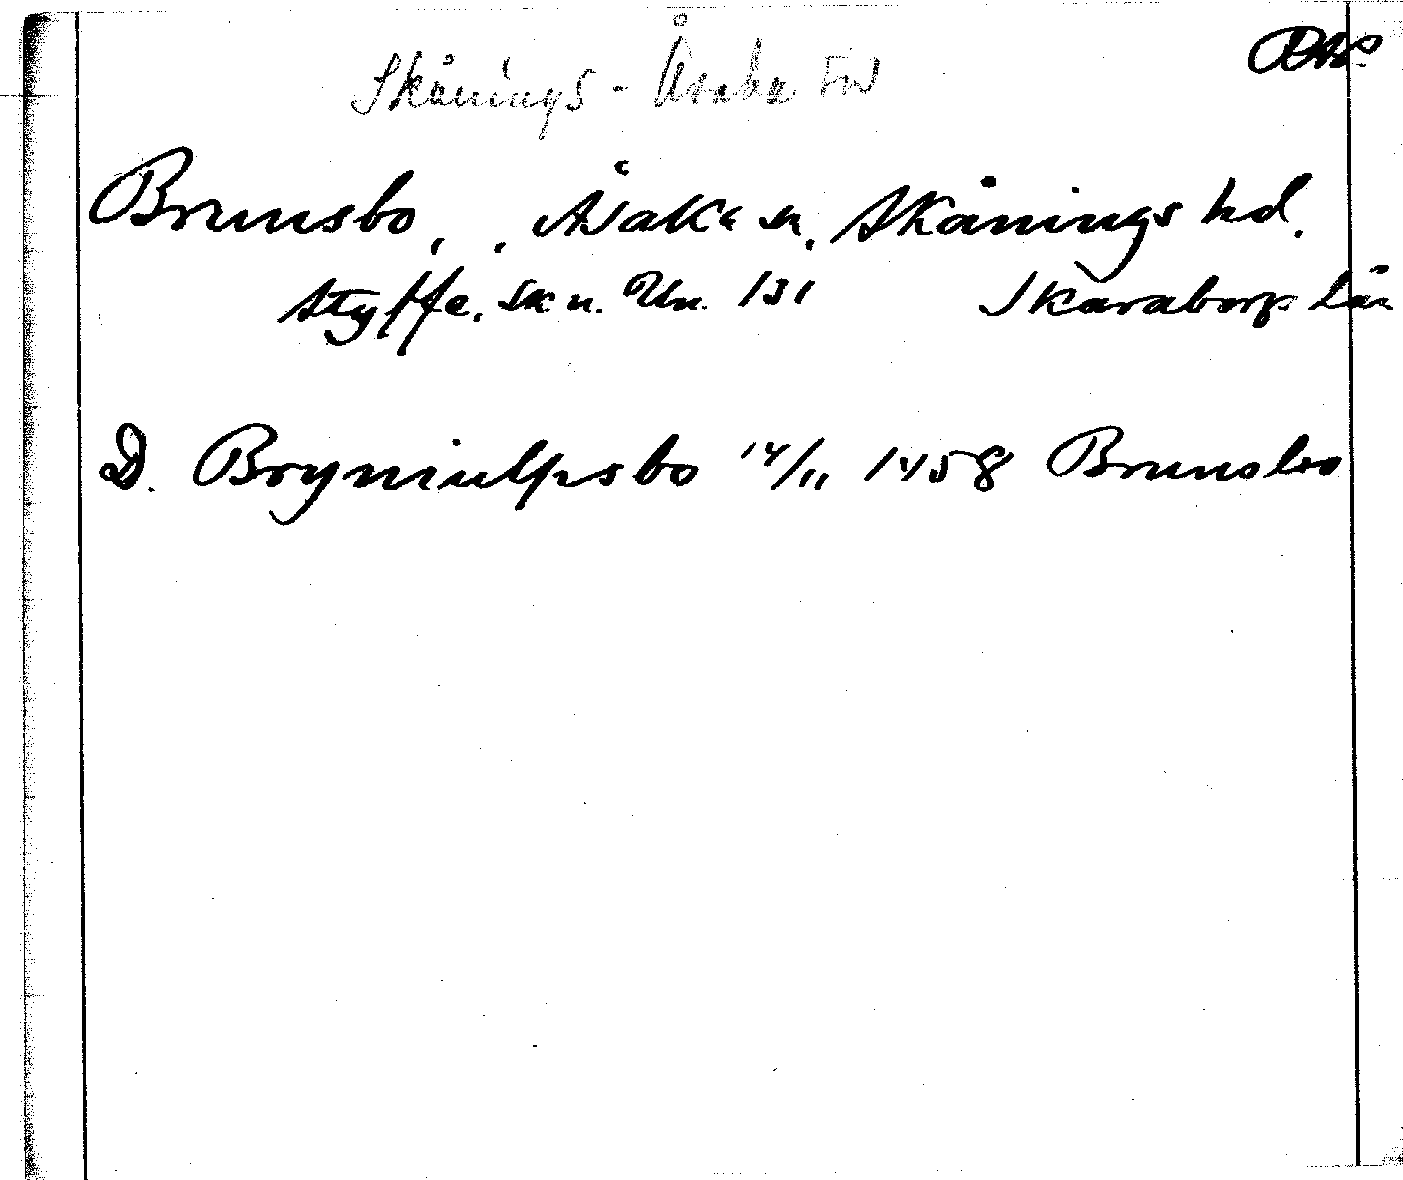 Skånings-Åsaka
Brunsbo, Åsaka sn. Skånings hd.
Styffe. Sk u. Un. 131 Skaraborgs län
D. Bryniulfsbo 14/11 1458 Brunsbo